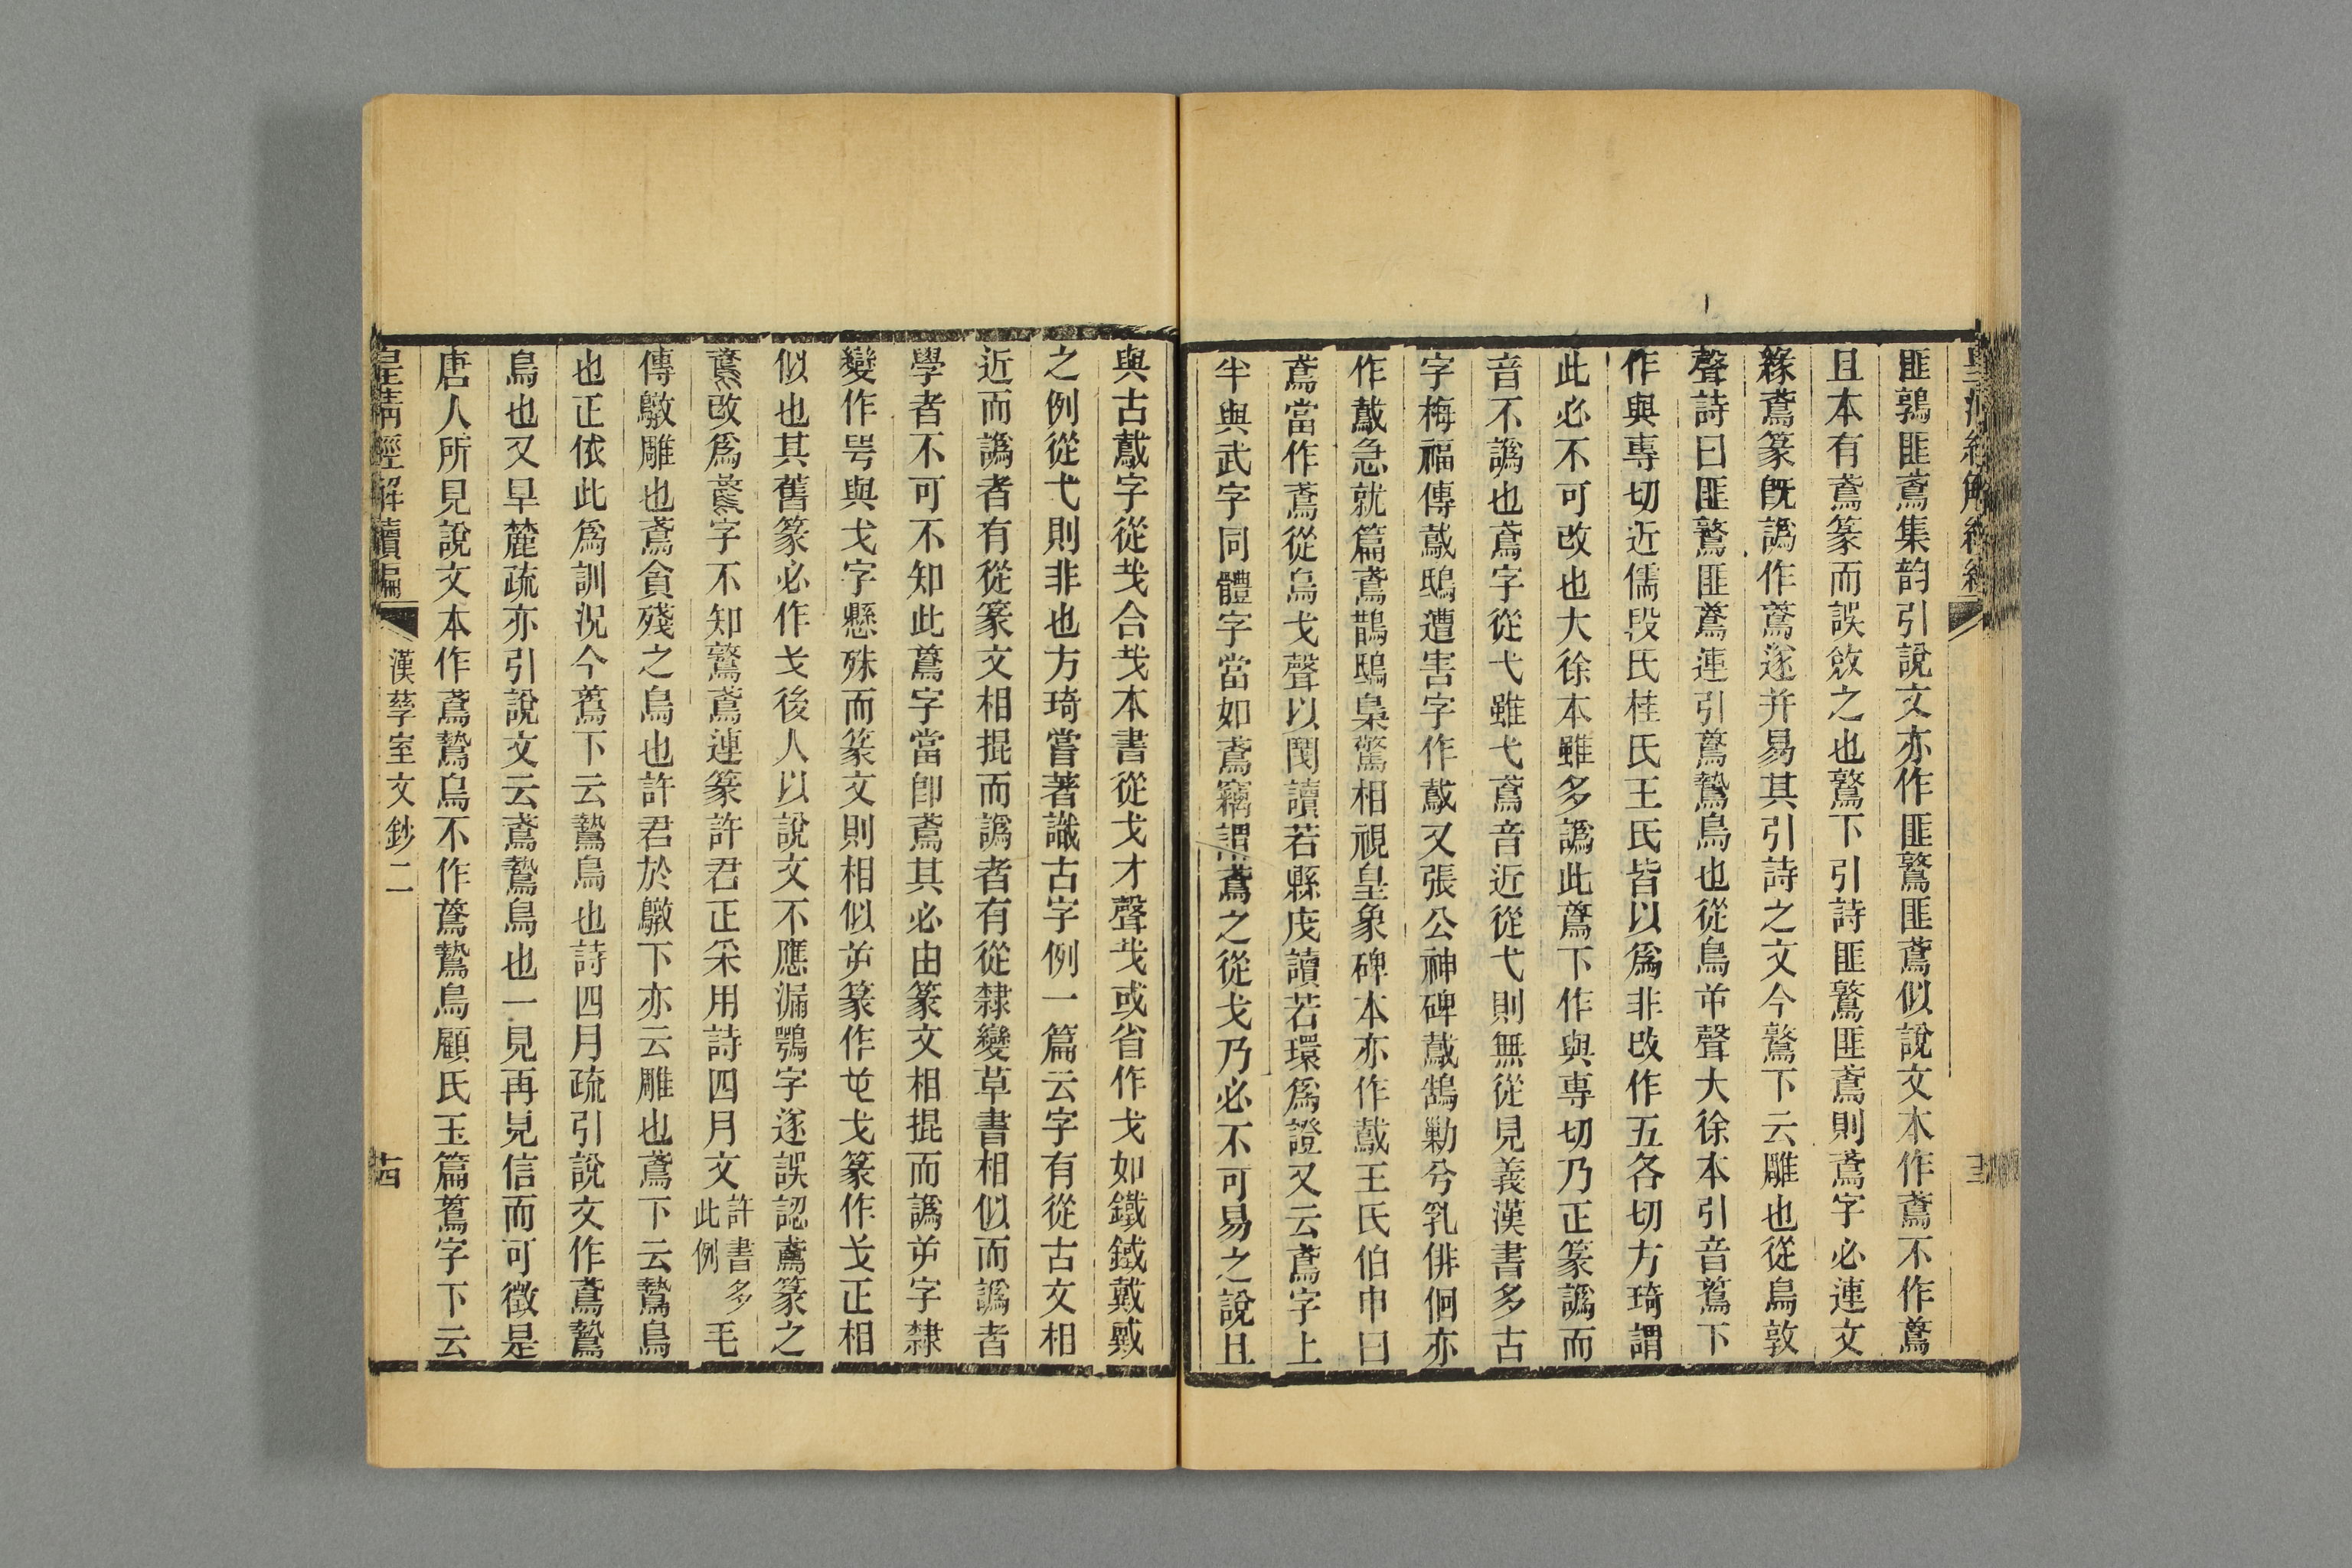 匪鶉匪鳶集韵引說文亦作匪鷻匪鳶似說文本作鳶不作䳒
且本有鳶篆而誤敚之也鷻下引詩匪鷻匪鳶則鳶字必連文
緣鳶篆旣譌作䳒遂并易其引詩之文今鷻下云雕也從鳥敦
聲詩曰匪鷻匪䳒連引䳒鷙鳥也從鳥屰聲大徐本引音䳒下
作與專切近儒段氏桂氏王氏皆以爲非改作五各切方琦謂
此必不可改也大徐本雖多譌此䳒下作與專切乃正篆譌而
音不譌也鳶字從弋雖弋鳶音近從弋則無從見義漢書多古
字梅福傳䳒鴟遭害字作䳒又張公神碑䳒鵠勦兮乳俳佪亦
作䳒急就篇鳶鵲鴟梟驚相視皇象碑本亦作䳒王氏伯申曰
鳶當作鳶從鳥戈聲以閺讀若縣戌讀若環爲證又云鳶字上
半與武字同體字當如鳶竊謂鳶之從戈乃必不可易之說且
與古䳒字從𢦏合𢦏本書從戈才聲𢦏或省作戈如鐵鐵戴戴
之例從弋則非也方琦嘗著識古字例一篇云字有從古文相
近而譌者有從篆文相掍而譌者有從隸變草書相似而譌者
學者不可不知此䳒字當卽鳶其必由篆文相掍而譌屰字隸
變作咢與戈字懸殊而篆文則相似屰篆作屰戈篆作戈正相
似也其舊篆必作戈後人以說文不應漏鶚字遂誤認鳶篆之
鳶改爲䳒字不知鷻鳶連篆許君正采用詩四月文許書多此例毛
傳鷻雕也鳶貪殘之鳥也許君於鷻下亦云雕也鳶下云鷙鳥
也正依此爲訓況今䳒下云鷙鳥也詩四月疏引說文作鳶鷙
鳥也又旱麓疏亦引說文云鳶鷙鳥也一見再見信而可徵是
唐人所見說文本作鳶鷙鳥不作䳒鷙鳥顧氏玉篇䳒字下云
皇淸經解續編
漢孳室文鈔二
十四